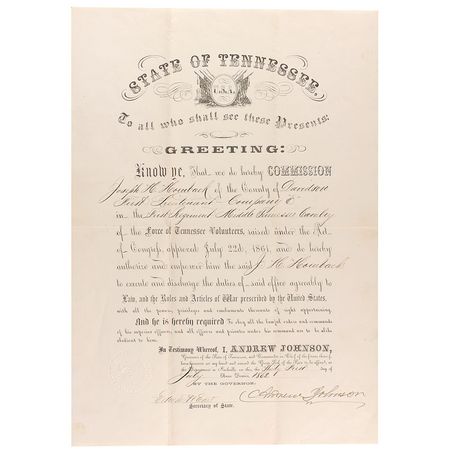 STATE OF TENNESSEE.
U.S.A.
To all who shall see these Presents:
GREETING:
Know ye, That we do hereby COMMISSION
Joseph H. Hornback of the County of Davidson
First Lieutenant Company
in the First Regiment Middle Tennessee Cavalry
of the Force of Tennessee Volunteers, raised under the Act
of Congress, approved July 22d, 1861, and do hereby
authorize and empower him the said J. H. Hornback
to execute and discharge the duties of said office agreeably to
Law, and the Rules and Articles of War prescribed by the United States,
with all the powers, privileges and emoluments thereunto of right appertaining.
And he is hereby required To obey all the lawful orders and commands
of his superior officers; and all officers and privates under his command are to be obe-
dient to him.
In Testimony Whereof, I, ANDREW JOHNSON,
Governor of the State of Tennessee, and Commander in Chief of the forces thereof,
have hereunto set my hand and caused the Great Seal of the State to be affixed, at
the Department in Nashville on this, the Thirty First day of
July Anno Domini, 1862
BY THE GOVERNOR:
Andrew Johnson
Edward H. East
Secretary of State.